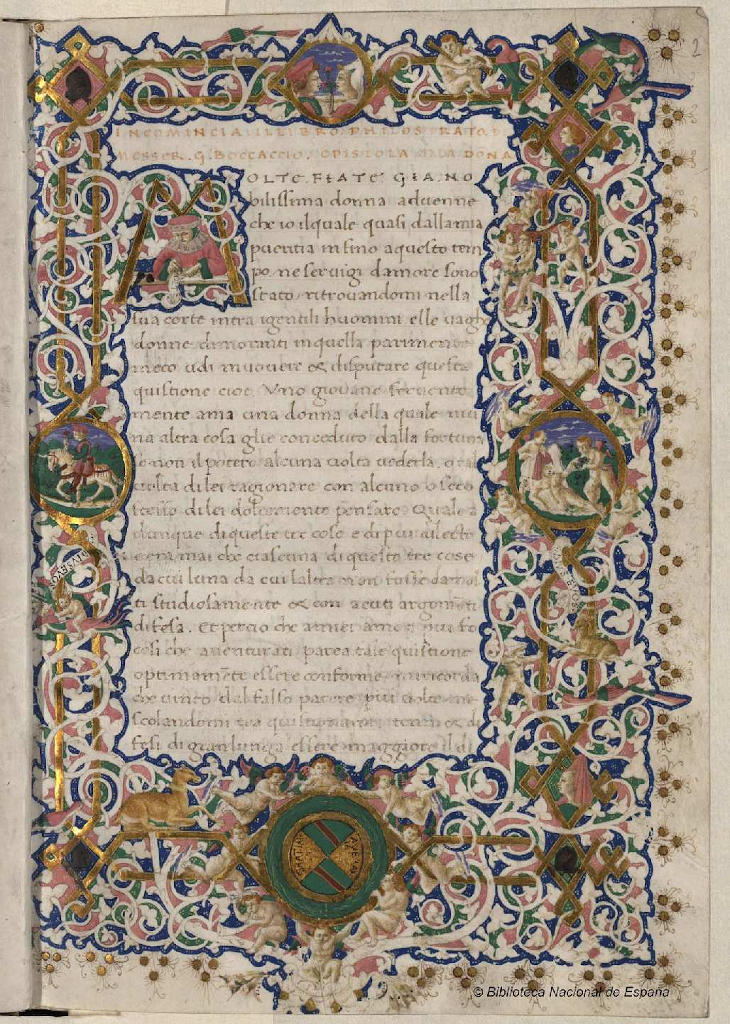 2
INCOMINCIA IL LIBRO PHILOSTRATO D
MESSER. G. BOCCACCIO. EPISTOLA ALA DONA
MOLTE FIATE GIA NO
bilissima donna aduenne
che io il quale quasi dalla mia
pueritia infino a questo tem
po ne seruigi damore sono
stato ritrouandomi nella
sua corte intra igentili huomini elle uaghe
donne dimoranti in quella parimente
meco udi muouere & disputare questa
quistione cioe. Vno giouane feruente
mente ama una donna della quale niu
na altra cosa glie conceduto dalla fortuna
se non il potere alcuna uolta uederla, o tal
uolta di lei ragionare con alcuno o seco
stesso di lei dolcemente pensare. Quale a
dunque di queste tre cose e di piu dilecto
ne mai che ciascuna di queste tre cose
da cui luna da cui laltra non fosse da mol
ti studiosamente & con acuti argomēti
difesa. Et percio che a miei amori piu fo
cosi che auenturati parea tale quistione
optimamēte essere conforme mi ricorda
che uinto dal falso parere piu uolte me
scolandomi tra quistionanti tenni & di
fesi di gran lunga essere maggiore il di
© Biblioteca Nacional de España